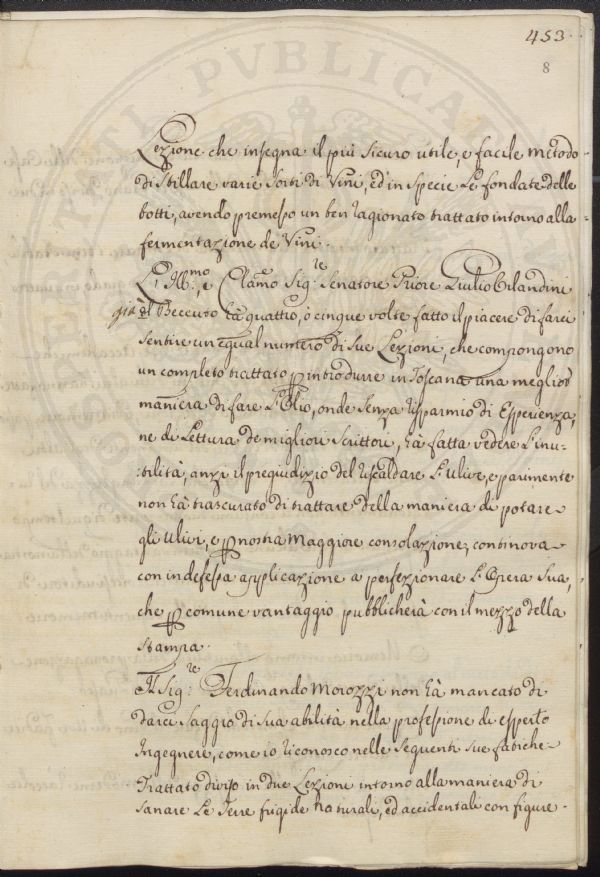 453.
8
Lezione che insegna il più sicuro utile, e facile metodo
di stillare varie sorti di Vini, ed in specie le fondate delle
botti, avendo premesso un ben ragionato trattato intorno alla
fermentazione de Vini.
L'Ill:mo, e Clamo Sig:re Senatore Priore Giulio Orlandini
già del Beccuto hà quattro, ò cinque volte fatto il piacere di farci
sentire un egual numero di sue Lezioni, che compongono
un completo trattato p introdurre in Toscana una meglior
manniera di fare l'Olio, onde senza risparmio di Esperienza,
ne di Lettura de migliori Scrittori, hà fatta vedere l'inu-
:tilità, anzi il pregiudizio del riscaldare l'ulive, e parimente
non hà trascurato di trattare della maniera di potare
gli ulivi, e p nostra maggiore consolazione, continova
con indefessa applicazione a perfezionare l'Opera sua,
che p comune vantaggio pubblicherà con il mezzo della
stampa.
Il Sig:re Ferdinando Morozzi non hà mancato di
darci saggio di sua abilità nella professione di esperto
Ingegnere, come io riconosco nelle seguenti sue fatiche.
Trattato diviso in due Lezioni intorno alla maniera di
sanare le Terre frigide naturali, ed accidentali con figure.
PUBLICAE
PROSPERITATI